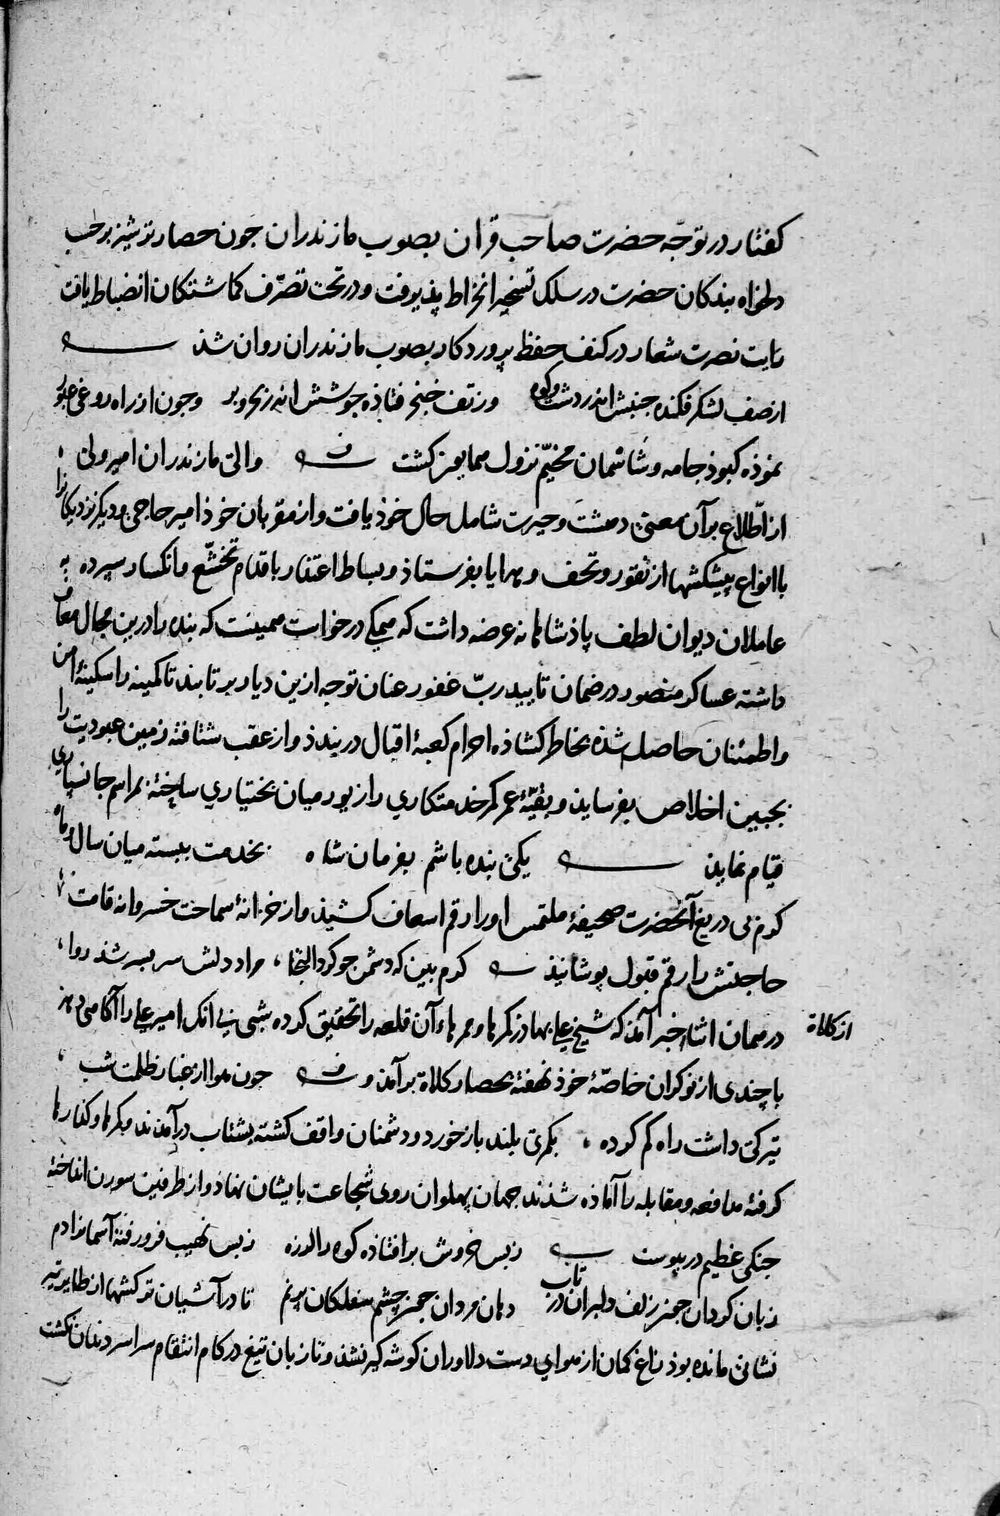 کفتار در توجّه حضرت صاحب قران بصوب مازندران جون حصار ترشیز برحسب
دلخواه بندکان حضرت در سلک تسخیر انخراط پذیرفت و در تحت تصرّف کماشتکان انضباط یافت
رایت نصرت شعار در کنف حفظ پروردکار بصوب مازندران روان شذ
از صف لشکر فکنده جنبش اندر دشت و کوه وز تف خنجر فتاذه جوشش اندر بحر و بر وجون از راه روغی عبور
نموذه کبوذ جامه و شاسمان مخیّم نزول همایون کشت ف والی مازندران امیر ولی
از اطّلاع بر آن معنی دهشت و حیرت شامل حال خوذ یافت و از مقربان خوذ امیر حاجی و دیکر نزدیکانرا
با انواع پیشکشها از نقود و تحف و هدایا بفرستاذ و بساط اعتذار باقدام تخشّع و انکسار سپرده به
عاملان دیوان لطف پاذشاهانه عرضه داشت که همکی درخواست همینست که بنده را درین مجال معاف
داشته عساکر منصور در ضمان تایید ربّ غفور عنان توجه ازین دیار برتابند تا کمینه را سکینهٔ امن
و اطمئنان حاصل شذه بخاطر کشاذه احرام کعبهٔ اقبال دربندذ و از عقب شتافته زمین عبودیت را
بجبین اخلاص بفرسایذ و بقیّهٔ عمر کمر خدمتکاری را زیور میان بختیاری ساخته بمراسم جانسپاری
قیام نمایذ یکی بنده باشم بفرمان شاه بخدمت ببسته میان سال و ماه
کرم بی دریغ آنحضرت صحیفهٔ ملتمس او را رقم اسعاف کشیذ و از خزانهٔ سماحت خسروانه قامت
حاجتش را رقم قبول پوشانیذ کرم بین که دشمن جو کرد التجا، مراد دلش سر بسر شذ روا،
در همان اثنا خبر آمذ که شیخ علی بهادر کمرها و ممرهاء آن قلعه را تحقیق کرده شبی بی انک امیر علی را آکاهی دهذ
از کلاة
با چندی از نوکران خاصّهٔ خوذ نهفته بحصار کلاة برآمذ و ف جون هوا از غبار ظلمت شب
تیرکی داشت راه کم کرده، بکمری بلند باز خورد و دشمنان واقف کشته بشتاب درآمدند و کمرها و کنارها
کرفته مدافعه و مقابله را آماذه شذند جهان پهلوان روی شجاعت بایشان نهاذ و از طرفین سورن انداخته
جنکی عظیم در پیوست ز بس خروش برافتاذه کوه را لرزه ز بس نهیب فرو رفته آسمانرا دم
زبان کردان جون زلف دلبران در تاب دهان مردان جون جشم سفلکان بی نم تا در آشیان ترکشها از طایر تیر
نشانی مانده بوذ زاغ کمان از هوای دست دلاوران کوشه کیر نشذ و تا زبان تیغ در کام انتقام سراسر دندان نکشت